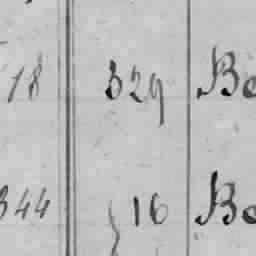 18 329 Be
344 16 Be